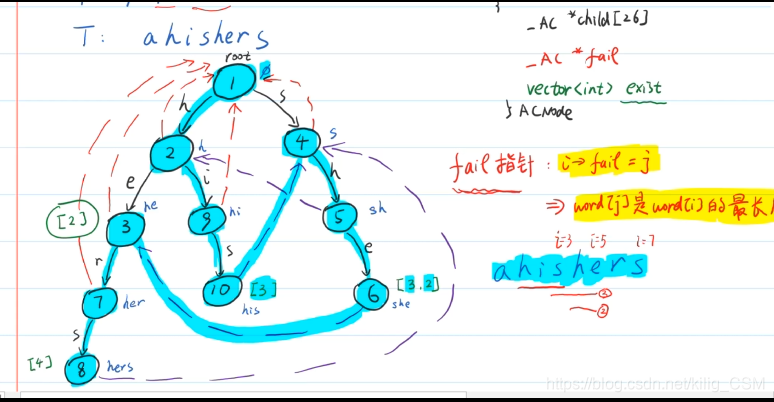 T: ahishers
}
_AC *child[26]
_AC * fail
vector<int> exist
} ACNode
root
1
h
s
2
h
4
s
e
i
h
[2]
3
he
9
hi
5
sh
r
s
e
7
her
10
[3]
his
6
[3,2]
she
s
[4]
8
hers
fail指针: i→fail = j
⇒ word[j]是word[i]的最长
i=3 i=5 i=7
ahishers
②
②
https://blog.csdn.net/kilig_CSM